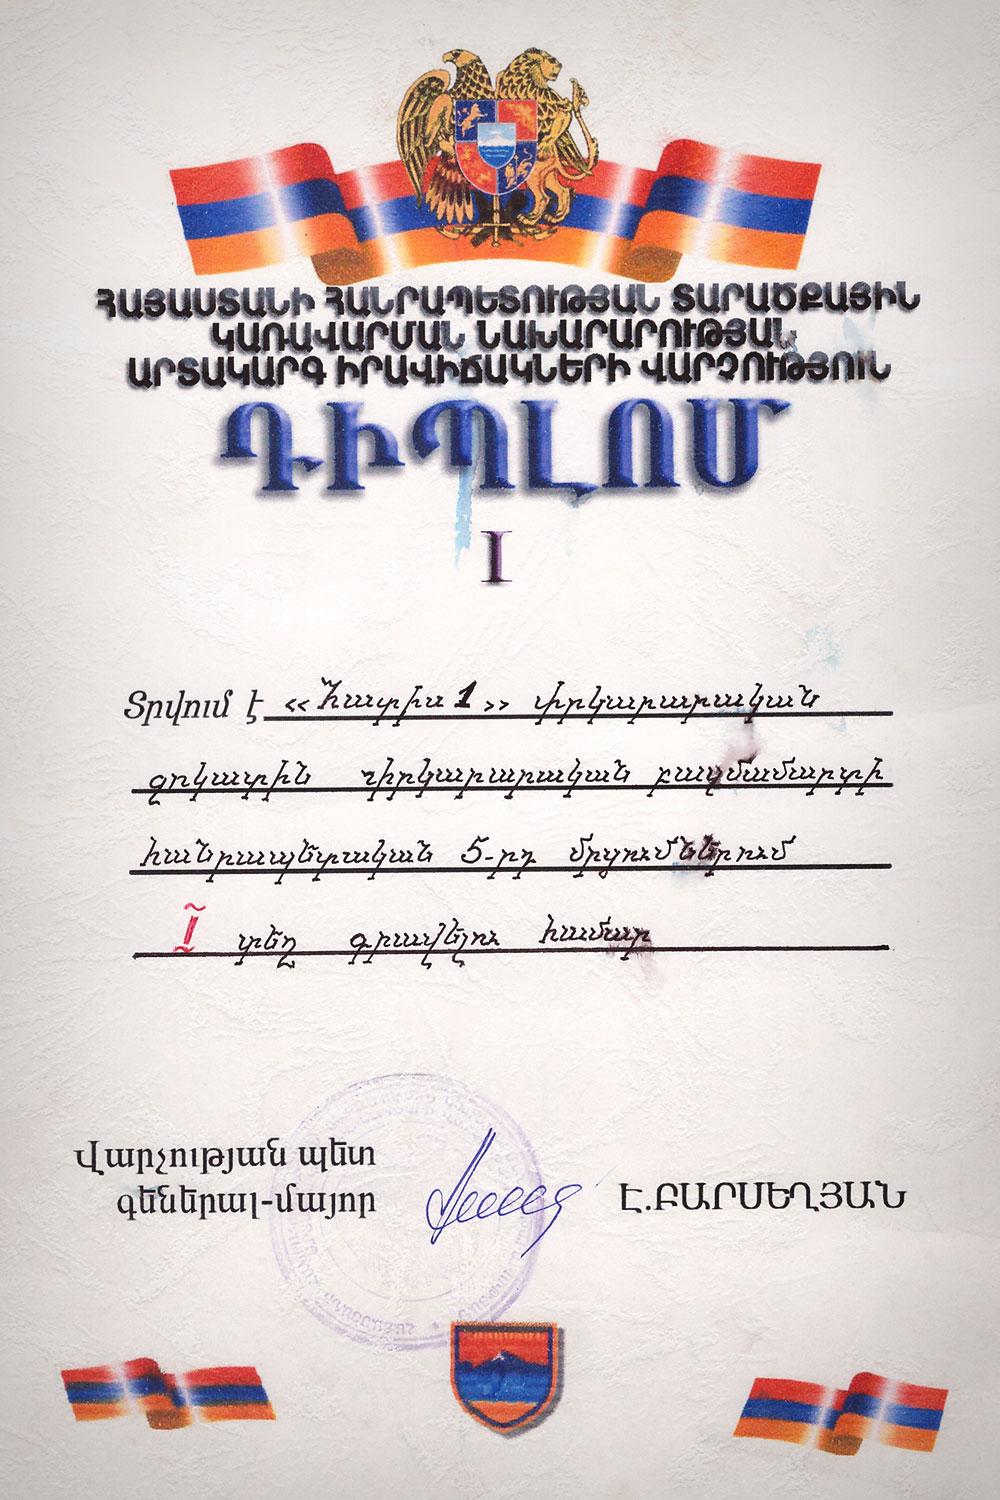 ՀԱՅԱՍՏԱՆԻ ՀԱՆՐԱՊԵՏՈՒԹՅԱՆ ՏԱՐԱԾՔԱՅԻՆ
ԿԱՌԱՎԱՐՄԱՆ ՆԱԽԱՐԱՐՈՒԹՅԱՆ
ԱՐՏԱԿԱՐԳ ԻՐԱՎԻՃԱԿՆԵՐԻ ՎԱՐՉՈՒԹՅՈՒՆ
ԴԻՊԼՈՄ
I
Տրվում է «Հատիս 1» փրկարարական
ջոկատին փրկարարական բազմամարտի
հանրապետական 5-րդ մրցումներում
I տեղ գրավելու համար
Վարչության պետ
գեներալ-մայոր Է.ԲԱՐՍԵՂՅԱՆ